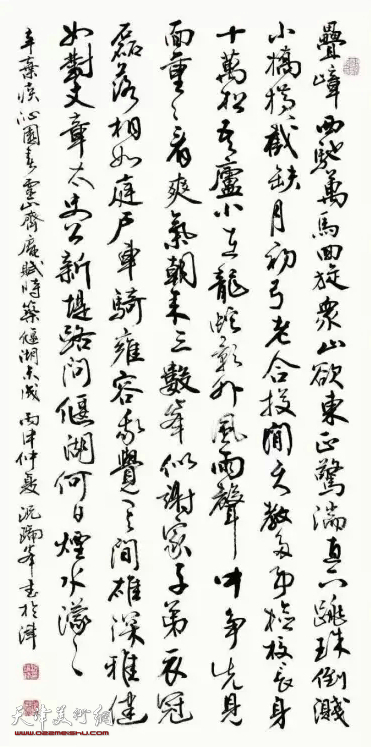 疊嶂西馳萬馬回旋衆山欲東正驚湍直下跳珠倒濺
小橋橫截缺月初弓老合投閒天教多事檢校長身
十萬松吾廬小在龍蛇影外風雨聲中爭先見
面重〻看爽氣朝来三數峯似謝家子弟衣冠
磊落相如庭户車騎雍容我覺其間雄深雅健
如對文章太史公新堤路問偃湖何日煙水濛〻
辛棄疾沁園春靈山齊庵賦時築偃湖未成 丙申仲夏 況瑞峯書於津
天津美术網
www.022meishu.com